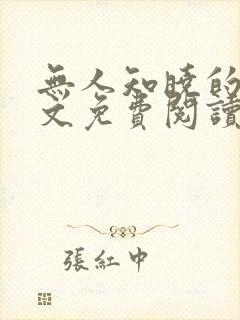 無人知曉的
文免費閱讀
張紅中